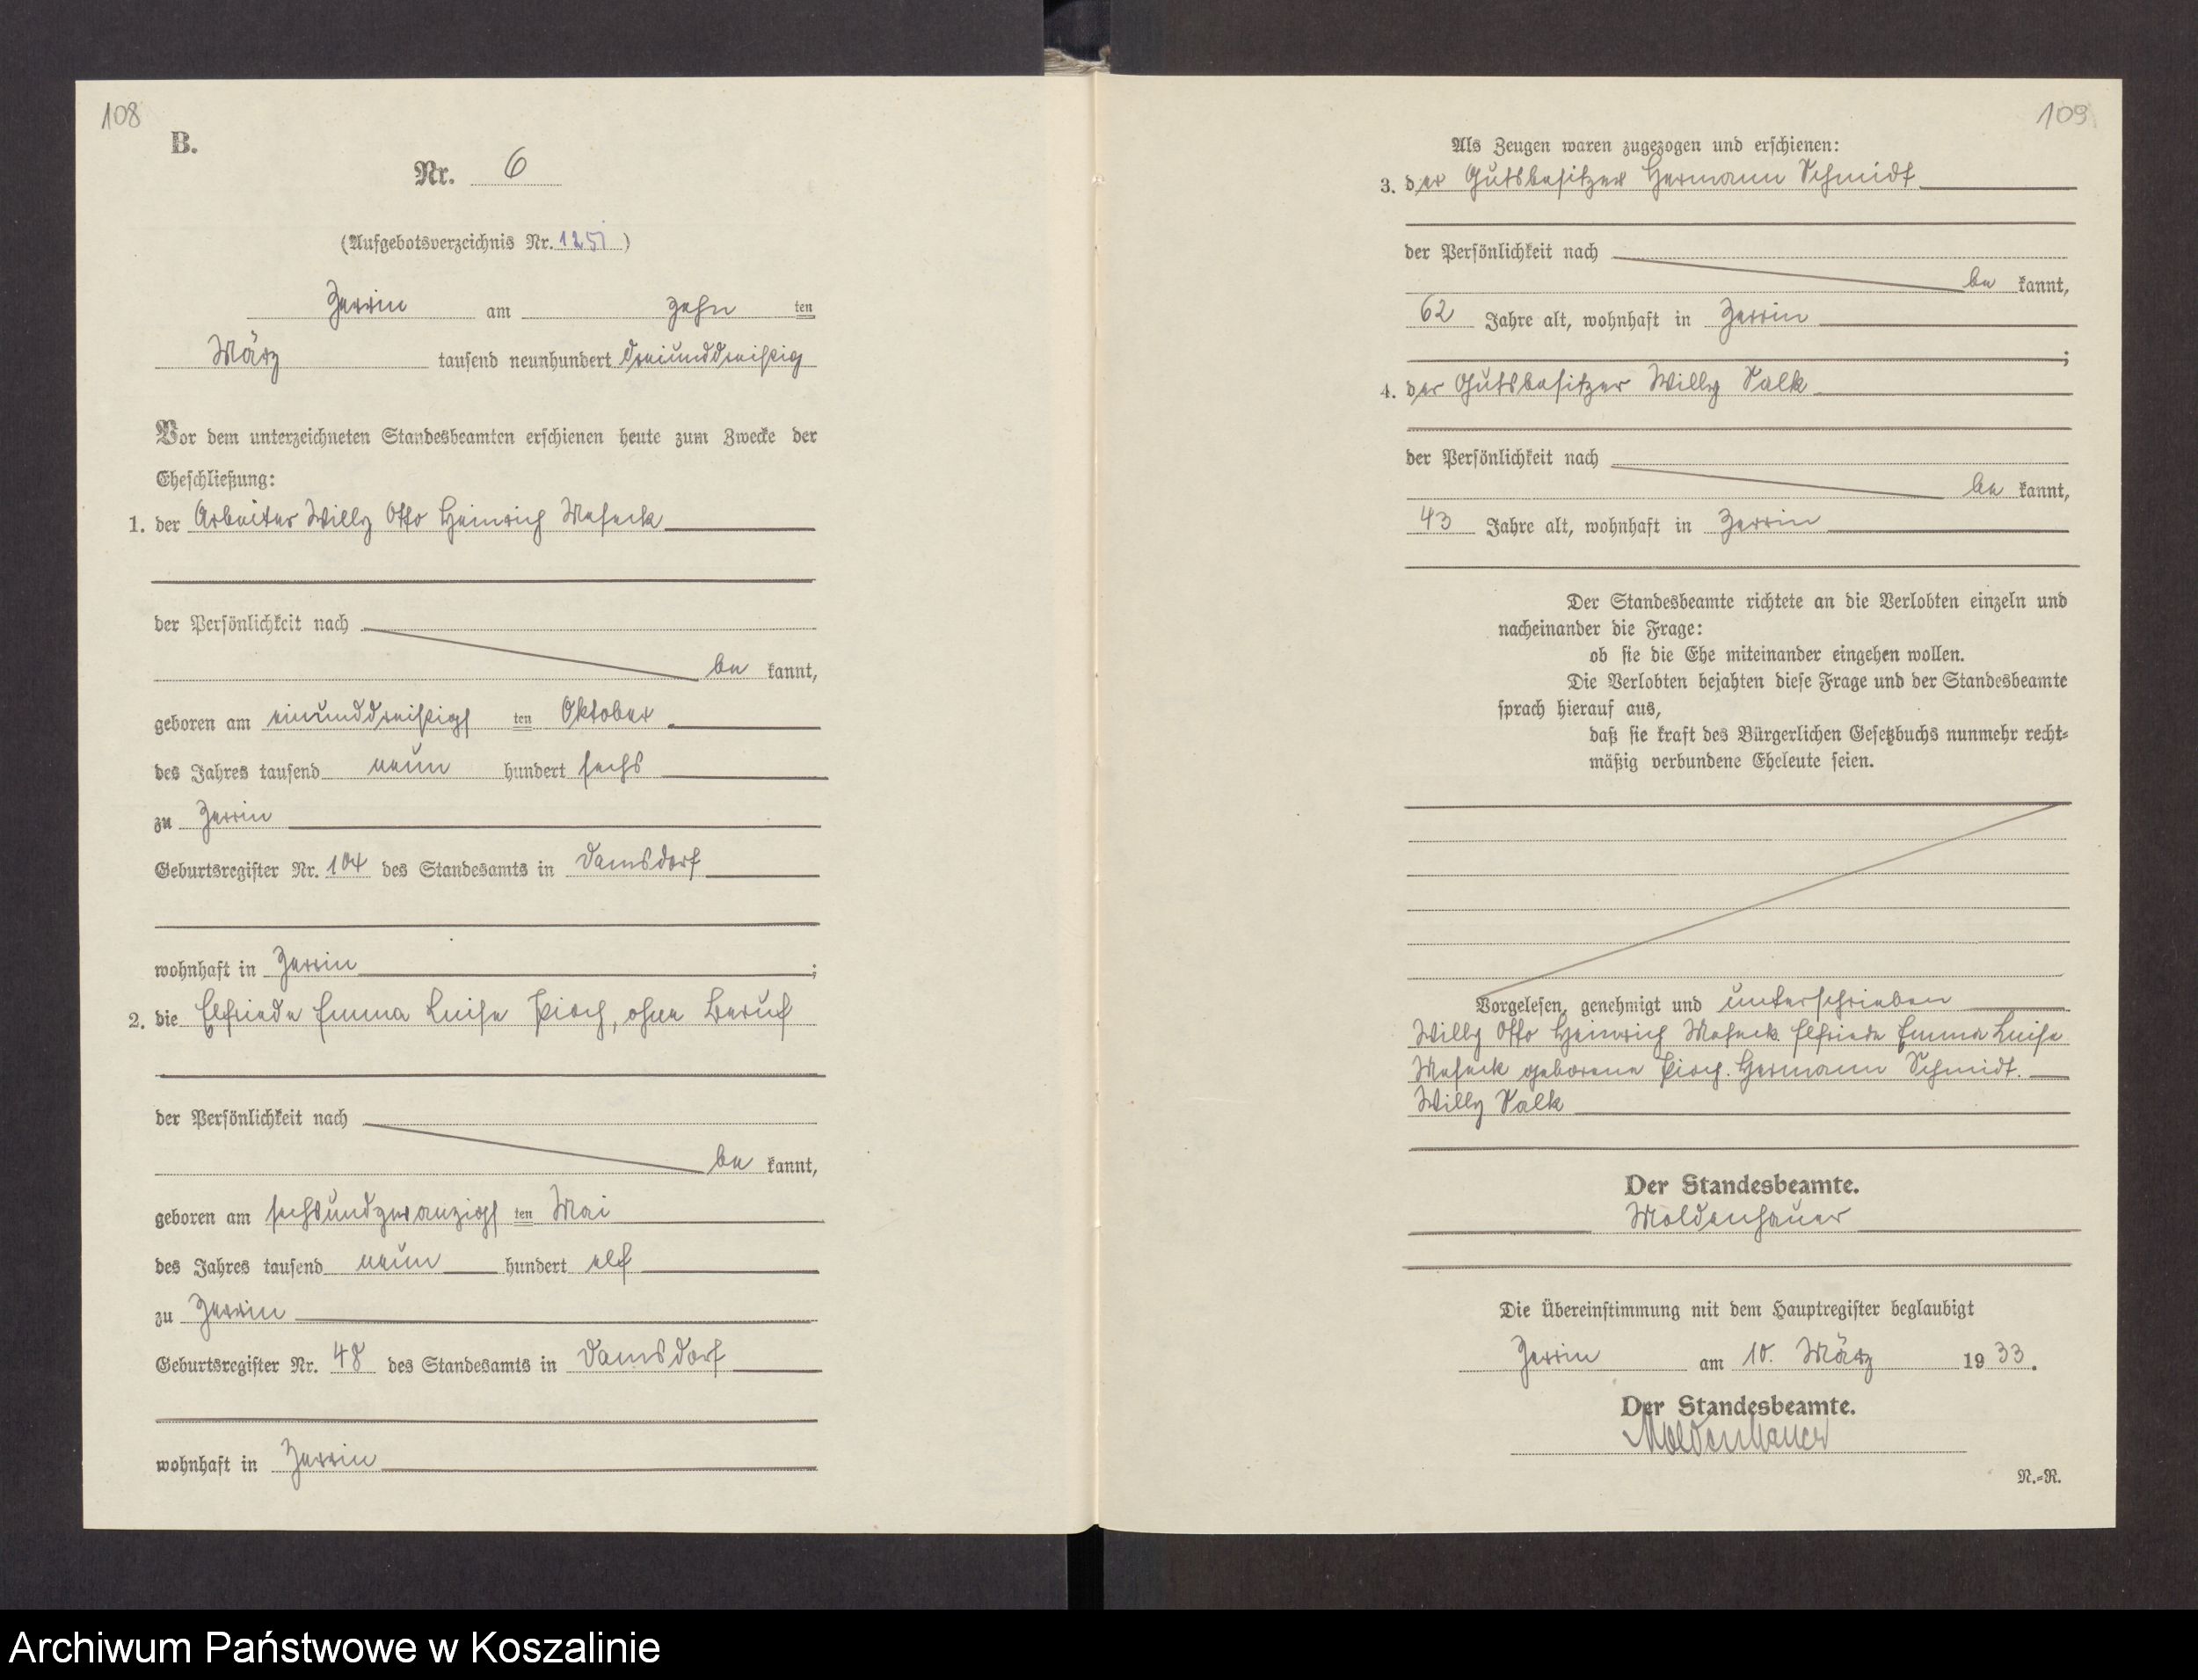 108
B.
Nr. 6
(Aufgebotsverzeichnis Nr. 1251)
Zerrin am zehn ten
März tausend neunhundert dreiunddreißig
Vor dem unterzeichneten Standesbeamten erschienen heute zum Zwecke der
Eheschließung:
1. der Arbeiter Willy Otto Heinrich Meseck
der Persönlichkeit nach
be kannt,
geboren am einunddreißigs ten Oktober
des Jahres tausend neun hundert sechs
zu Zerrin
Geburtsregister Nr. 104 des Standesamts in Damsdorf
wohnhaft in Zerrin ;
2. die Elfriede Emma Luise Pioch, ohne Beruf
der Persönlichkeit nach
be kannt,
geboren am sechsundzwanzigs ten Mai
des Jahres tausend neun hundert elf
zu Zerrin
Geburtsregister Nr. 48 des Standesamts in Damsdorf
wohnhaft in Zerrin
109
Als Zeugen waren zugezogen und erschienen:
3. der Gutsbesitzer Hermann Schmidt
der Persönlichkeit nach
be kannt,
62 Jahre alt, wohnhaft in Zerrin
;
4. der Gutsbesitzer Willy Salk
der Persönlichkeit nach
be kannt,
43 Jahre alt, wohnhaft in Zerrin
Der Standesbeamte richtete an die Verlobten einzeln und
nacheinander die Frage:
ob sie die Ehe miteinander eingehen wollen.
Die Verlobten bejahten diese Frage und der Standesbeamte
sprach hierauf aus,
daß sie kraft des Bürgerlichen Gesetzbuchs nunmehr recht-
mäßig verbundene Eheleute seien.
Vorgelesen, genehmigt und unterschrieben
Willy Otto Heinrich Meseck. Elfriede Emma Luise
Meseck geborene Pioch. Hermann Schmidt.
Willy Salk
Der Standesbeamte.
Moldenhauer
Die Übereinstimmung mit dem Hauptregister beglaubigt
Zerrin am 10. März 1933.
Der Standesbeamte.
Moldenhauer
N.-R.
Archiwum Państwowe w Koszalinie